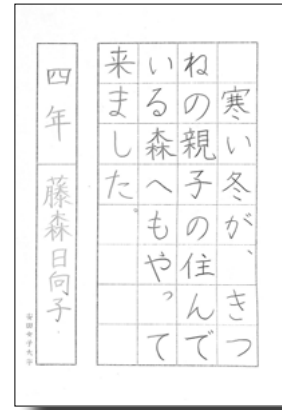 寒い冬が、きつ
ねの親子の住んで
いる森へもやって
来ました。
四年 藤森日向子
安田女子大学